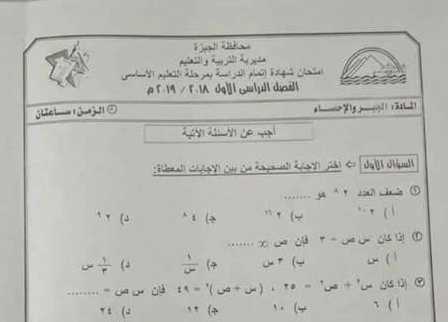 محافظة الجيزة
مديرية التربية والتعليم
امتحان شهادة إتمام الدراسة بمرحلة التعليم الأساسي
الفصل الدراسي الأول ٢٠١٨ / ٢٠١٩ م
المادة : الجبر والإحصاء الزمن : ساعتان
أجب عن الأسئلة الآتية
السؤال الأول اختر الإجابة الصحيحة من بين الإجابات المعطاة :
① ضعف العدد ٢^٨ هو .......
أ ) ٢^١٠ ب) ٢ ج) ٤^٨ د) ٢^٩
② إذا كان س ص = ٣ فإن ص ∝ .......
أ ) س ب) ٣ س ج) ١/س د) ١/٣ س
③ إذا كان س^٢ + ص^٢ = ٢٥ ، (س + ص)^٢ = ٤٩ فإن س ص = ........
أ ) ٦ ب) ١٠ ج) ١٢ د) ٢٤